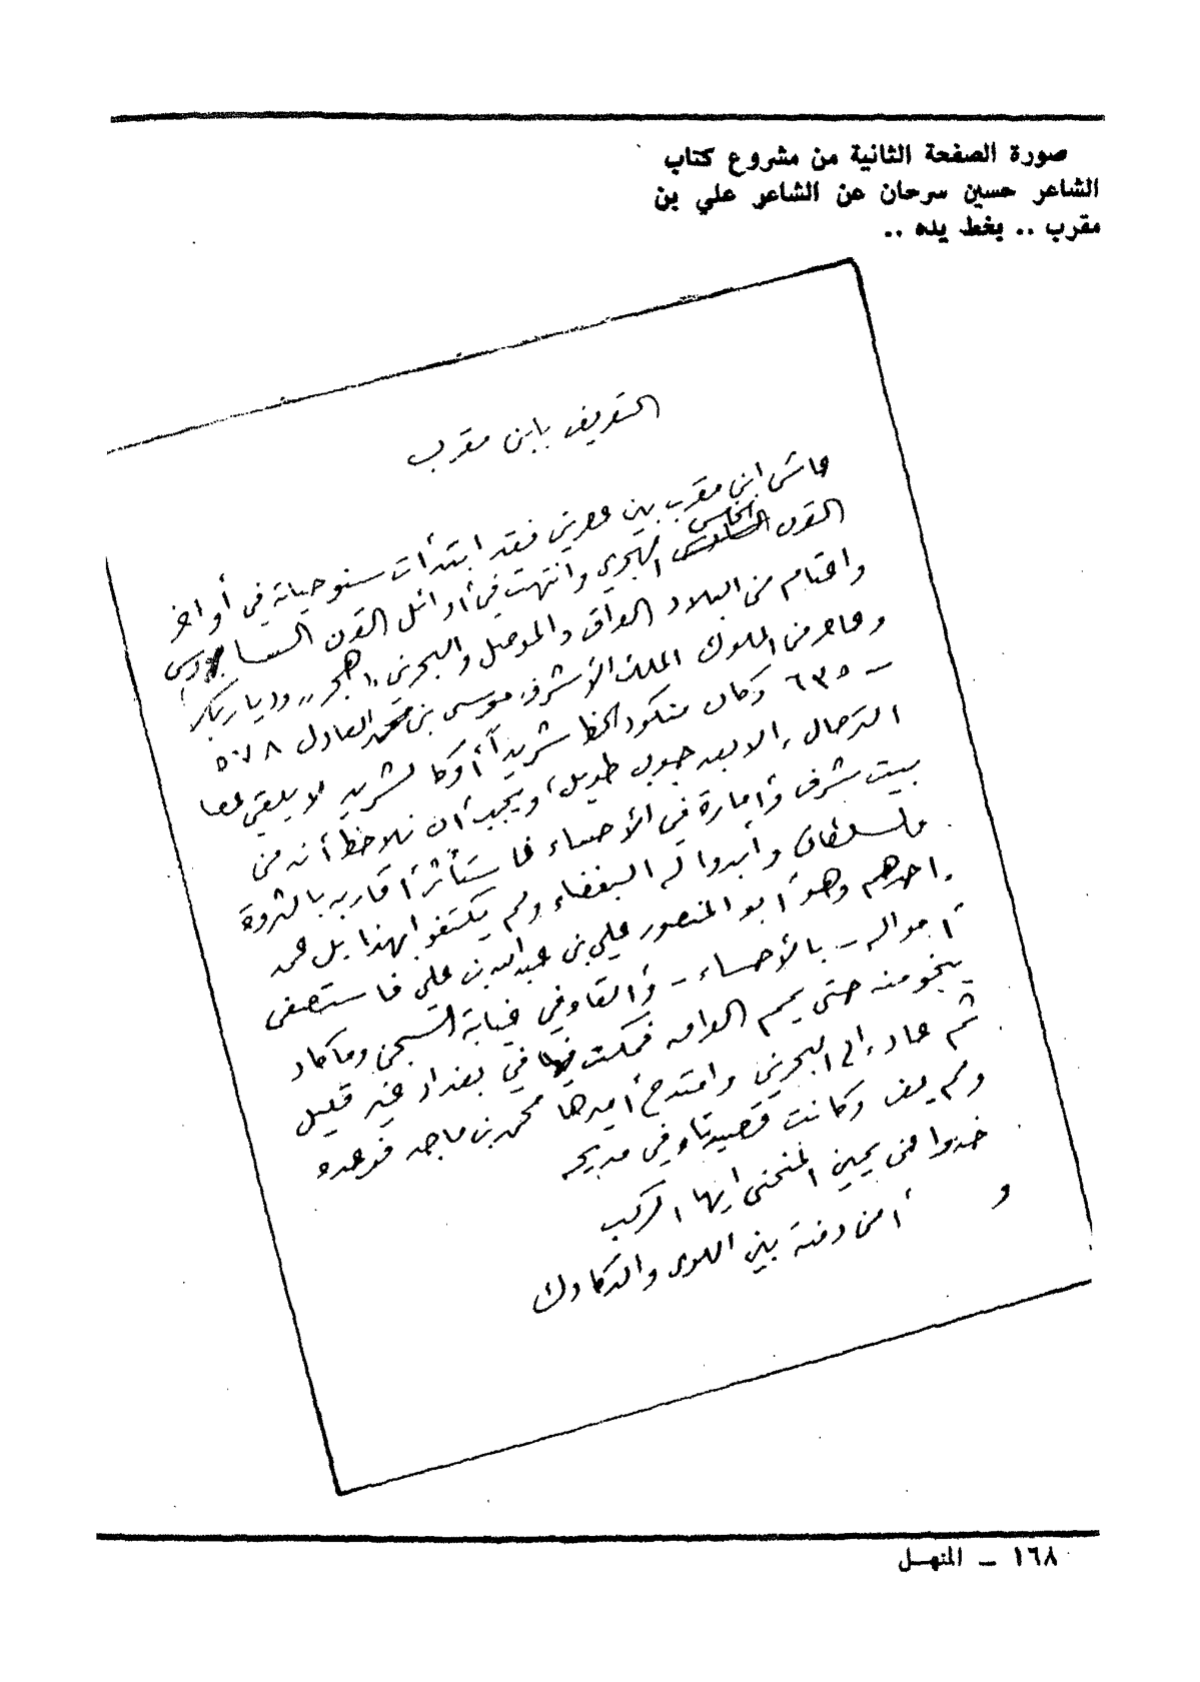 صورة الصفحة الثانية من مشروع كتاب
الشاعر حسين سرحان عن الشاعر علي بن
مقرب .. بخط يده ..
التعريف بابن مقرب
عاش ابن مقرب بين عصرين فقد ابتدأت سنو حياته في أواخر
القرن الخامس الهجري وانتهت في أوائل القرن السادس
واقتام من البلاد العراق والموصل والبحرين "هجر" وديار بكر
وعاصر من الملوك الملك الأشرف موسى بن العادل ٥٧٨
– ٦٣٥ وكان منكود الحظ شريداً أو كالشريد لا يلقي عصا
الترحال إلا بعد جوب طويل، ويجب أن نلاحظ أنه من
بيت شرف وإمارة في الأحساء فاستأثر أقاربه بالثروة
والسلطان وأبدوا له البغضاء ولم يكتفوا بهذا بل عمد
احدهم وهو أبو المنصور علي بن عبدالله بن علي فاستصفى
أمواله – بالأحساء – وألقاه في غيابة السجن وما كاد
ينجو منه حتى يمم العراق فمكث في بغداد غير قليل
ثم عاد إلى البحرين وامتدح أميرها محمد بن ماجد فوعده
ولم يف وكانت قصيدتاه في مديحه
خذوا عن يمين المنحنى ايها الركب
و أمن دمنة بين اللوى والدكادك
١٦٨ – المنهل